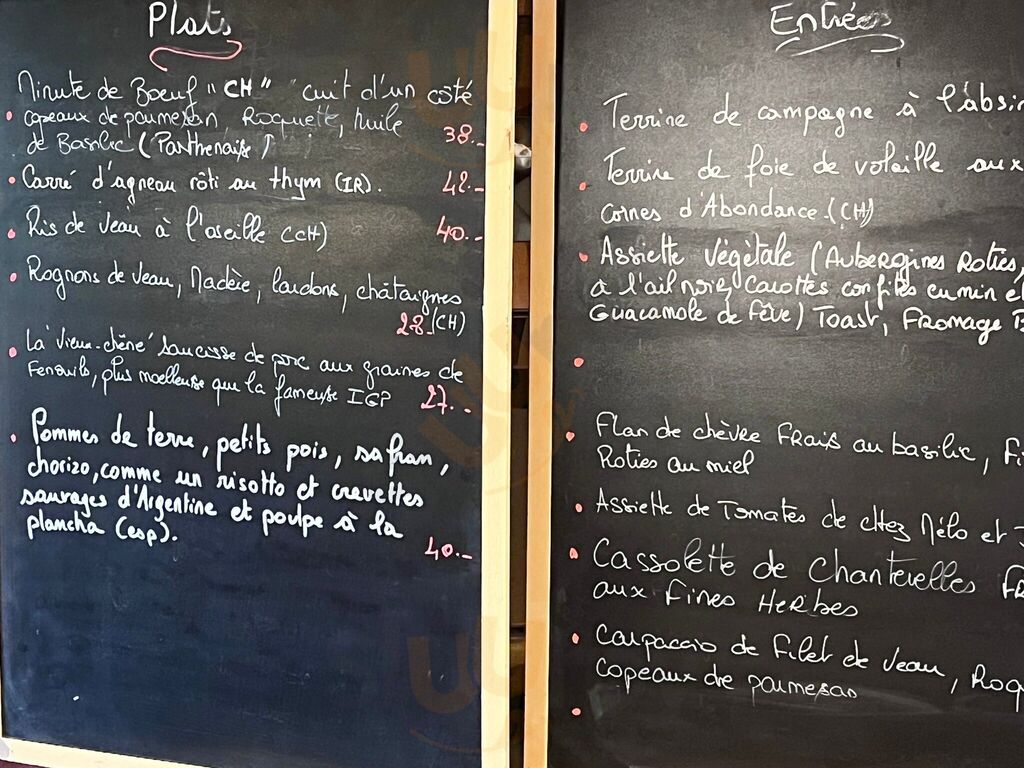 Plats
Minute de Boeuf "CH" cuit d'un côté
copeaux de parmesan Roquette, huile
de Basilic (Parthenaise) 38.-
Carré d'agneau rôti au thym (IR). 42.-
Ris de veau à l'oseille (CH) 40.-
Rognons de veau, Madère, lardons, châtaignes
28.- (CH)
La vieux-chêne saucisse de porc aux graines de
Fenouils, plus moelleuse que la fameuse IGP 27.-
Pommes de terre, petits pois, safran,
chorizo, comme un risotto et crevettes
sauvages d'Argentine et poulpe à la
plancha (esp).
40.-
Entrées
Terrine de campagne à l'absin
Terrine de foie de volaille aux
Cornes d'Abondance.(CH)
Assiette végétale (Aubergines Roties,
à l'ail noir, Carottes confites cumin et
Guacamole de Fève) Toast, Fromage
Flan de chèvre Frais au basilic, Fi
Roties au miel
Assiette de Tomates de chez Mélo et
Cassolette de Chanterelles FR
aux Fines Herbes
Carpaccio de Filet de Veau, Roq
Copeaux de parmesan